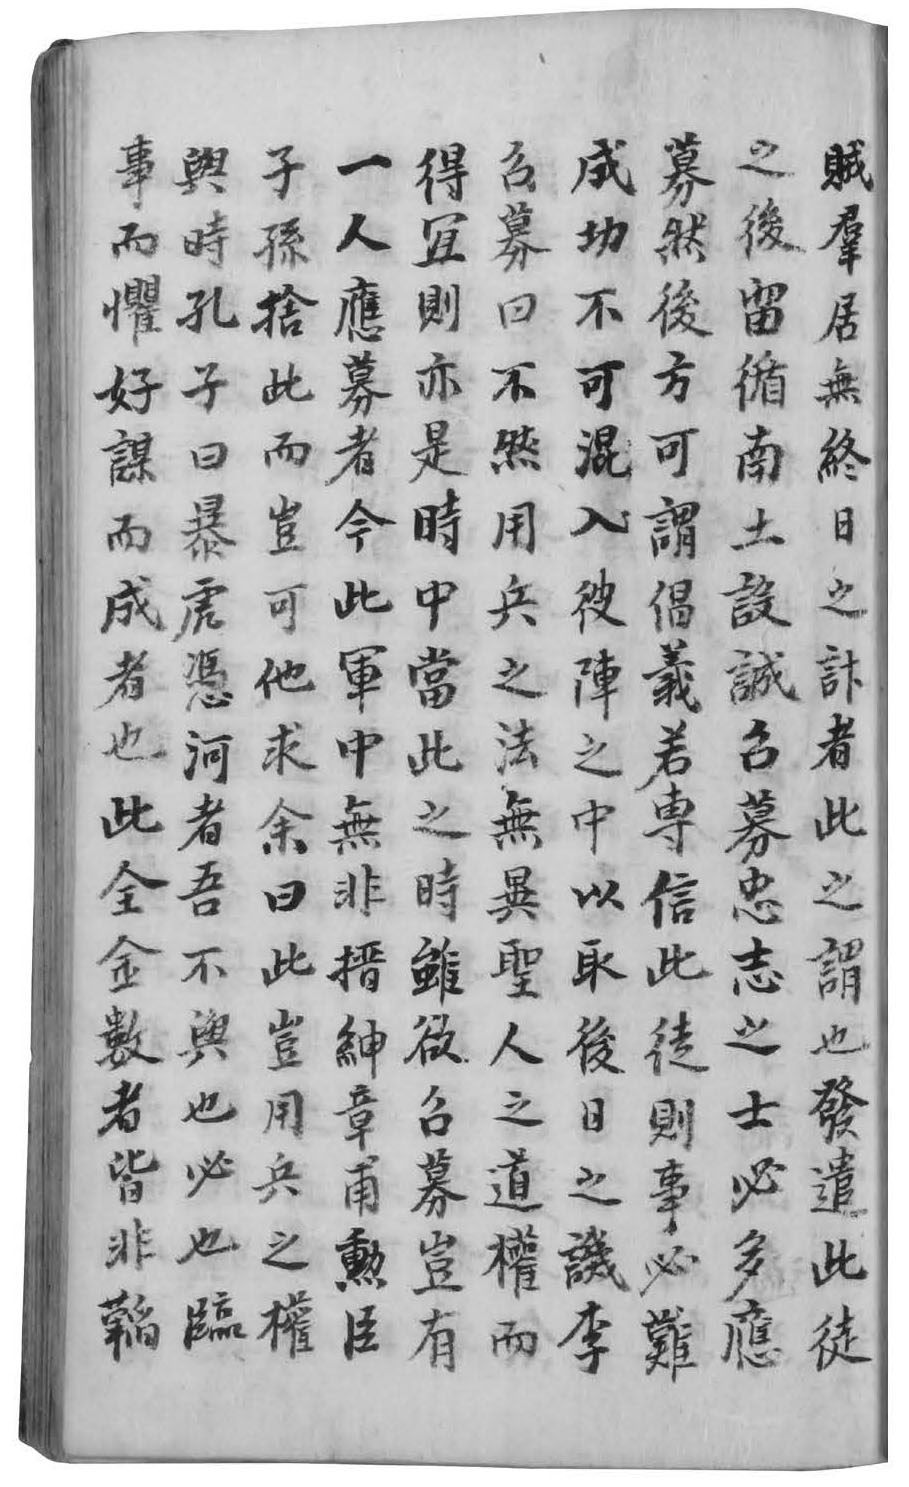 賊羣居無終日之計者此之謂也發遣此徒
之後留循南土設誠召募忠志之士必多應
募然後方可謂倡義若專信此徒則事必難
成功不可混入彼陣之中以取後日之譏李
召募曰不然用兵之法無異聖人之道權而
得宜則亦是時中當此之時雖欲召募豈有
一人應募者今此軍中無非搢紳章甫勳臣
子孫捨此而豈可他求余曰此豈用兵之權
與時孔子曰暴虎憑河者吾不與也必也臨
事而懼好謀而成者也此全金數者皆非韜